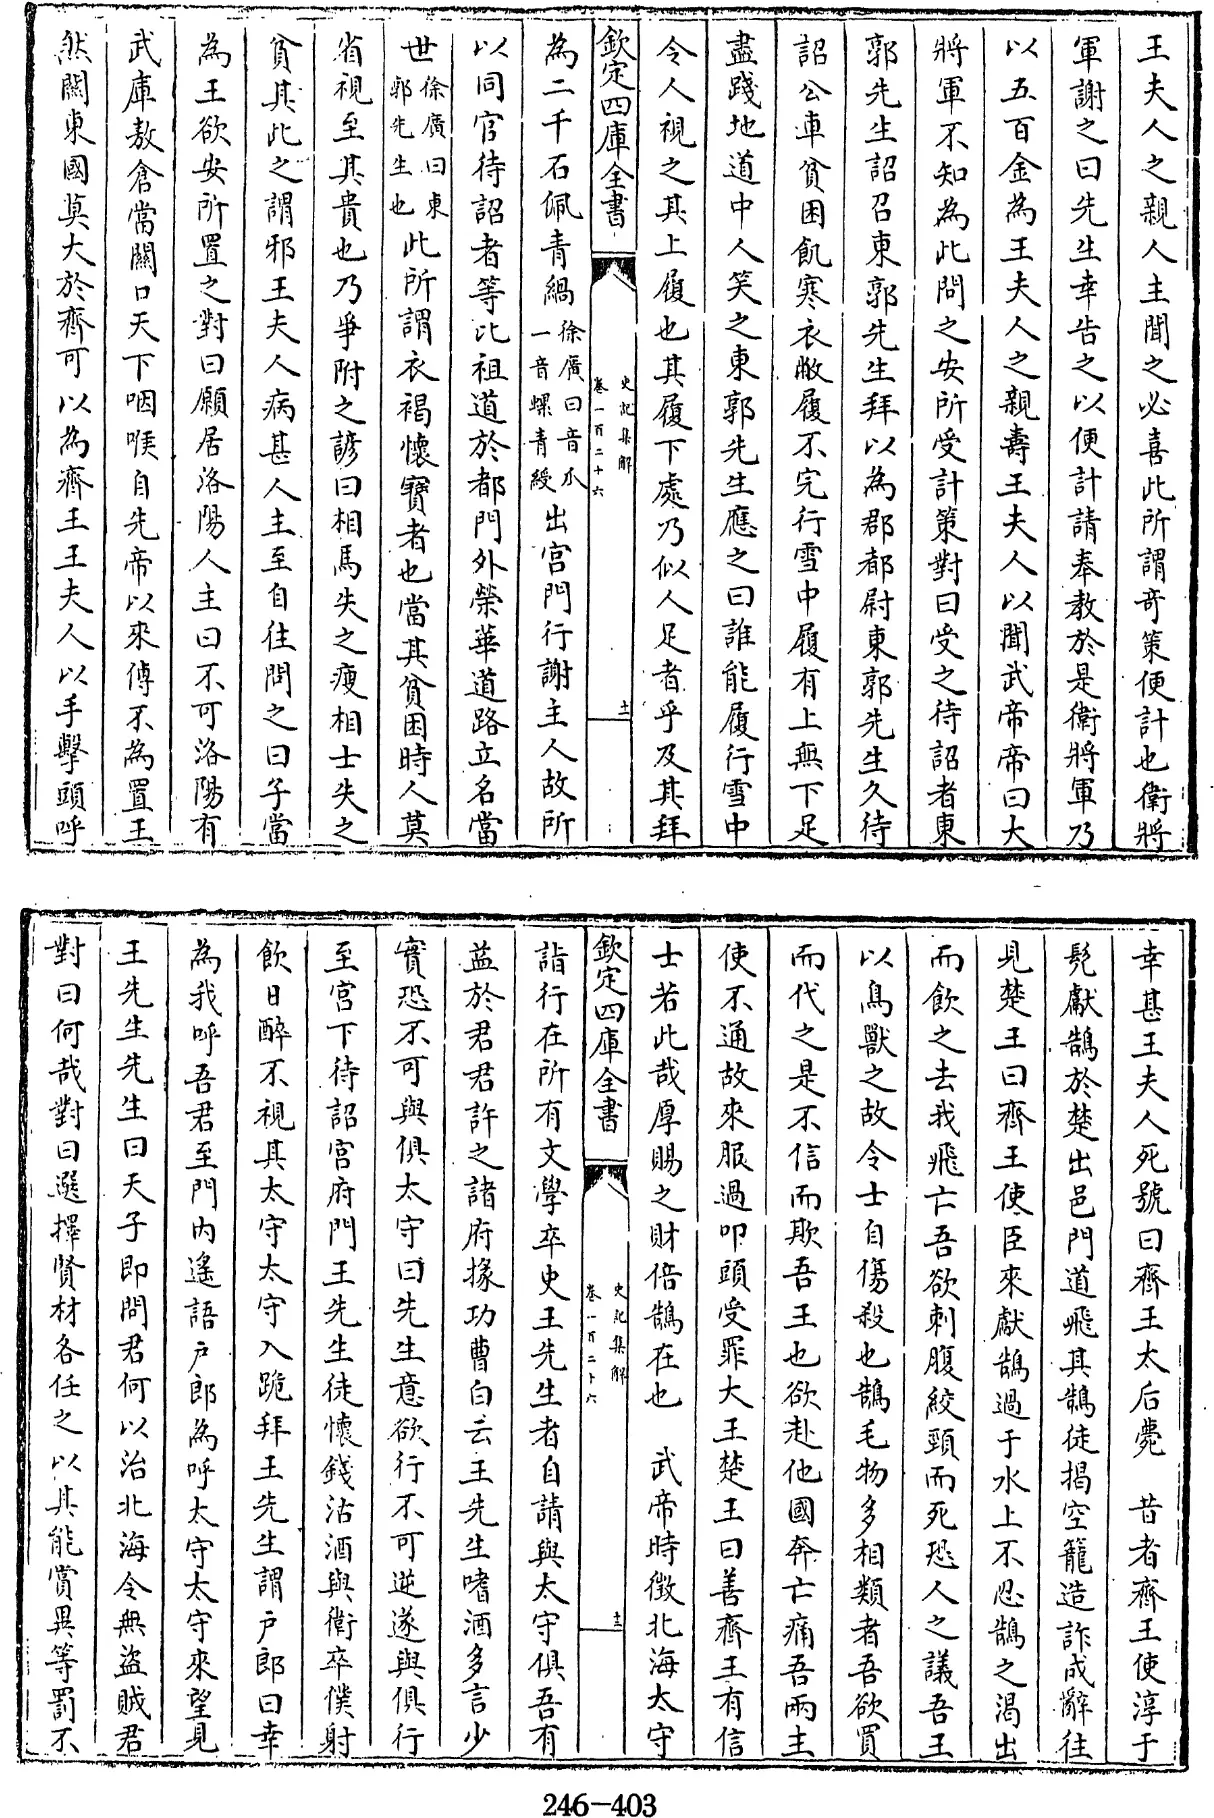 王夫人之親人主聞之必喜此所謂竒策便計也衛將
軍謝之曰先生幸告之以便計請奉教於是衛將軍乃
以五百金為王夫人之親壽王夫人以聞武帝帝曰大
將軍不知為此問之安所受計策對曰受之待詔者東
郭先生詔召東郭先生拜以為郡都尉東郭先生久待
詔公車貧困飢寒衣敝履不完行雪中履有上無下足
盡踐地道中人笑之東郭先生應之曰誰能履行雪中
令人視之其上履也其履下處乃似人足者乎及其拜
欽定四庫全書
史記集解
卷一百二十六
十一
為二千石佩青緺徐廣曰音瓜一音螺青綬出宫門行謝主人故所
以同官待詔者等比祖道於都門外榮華道路立名當
世徐廣曰東郭先生也此所謂衣褐懷寶者也當其貧困時人莫
省視至其貴也乃爭附之諺曰相馬失之瘦相士失之
貧其此之謂邪王夫人病甚人主至自往問之曰子當
為王欲安所置之對曰願居洛陽人主曰不可洛陽有
武庫敖倉當關口天下咽喉自先帝以來傳不為置王
然關東國莫大於齊可以為齊王王夫人以手擊頭呼
幸甚王夫人死號曰齊王太后薨 昔者齊王使淳于
髠獻鵠於楚出邑門道飛其鵠徒揭空籠造詐成辭往
見楚王曰齊王使臣來獻鵠過于水上不忍鵠之渴出
而飲之去我飛亡吾欲刺腹絞頸而死恐人之議吾王
以鳥獸之故令士自傷殺也鵠毛物多相類者吾欲買
而代之是不信而欺吾王也欲赴他國奔亡痛吾兩主
使不通故來服過叩頭受罪大王楚王曰善齊王有信
士若此哉厚賜之財倍鵠在也 武帝時徵北海太守
欽定四庫全書
史記集解
卷一百二十六
十二
詣行在所有文學卒史王先生者自請與太守俱吾有
益於君君許之諸府掾功曹白云王先生嗜酒多言少
實恐不可與俱太守曰先生意欲行不可逆遂與俱行
至宫下待詔宫府門王先生徒懷錢沽酒與衛卒僕射
飲日醉不視其太守太守入跪拜王先生謂户郎曰幸
為我呼吾君至門内遙語户郎為呼太守太守來望見
王先生先生曰天子即問君何以治北海令無盜賊君
對曰何哉對曰選擇賢材各任之以其能賞異等罰不
246-403